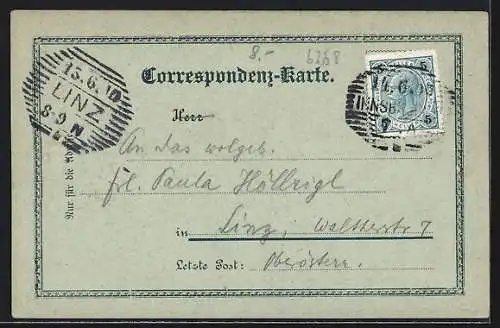 8.- 6268
15.6.10
LINZ
8-9 N
Correspondenz-Karte.
5 5
INNSB
5
Herr
Nur für die Ad
An das wolgeb.
Frl. Paula Höllrigl
in Linz, Waltherstr 7
Letzte Post: Oberösterr.